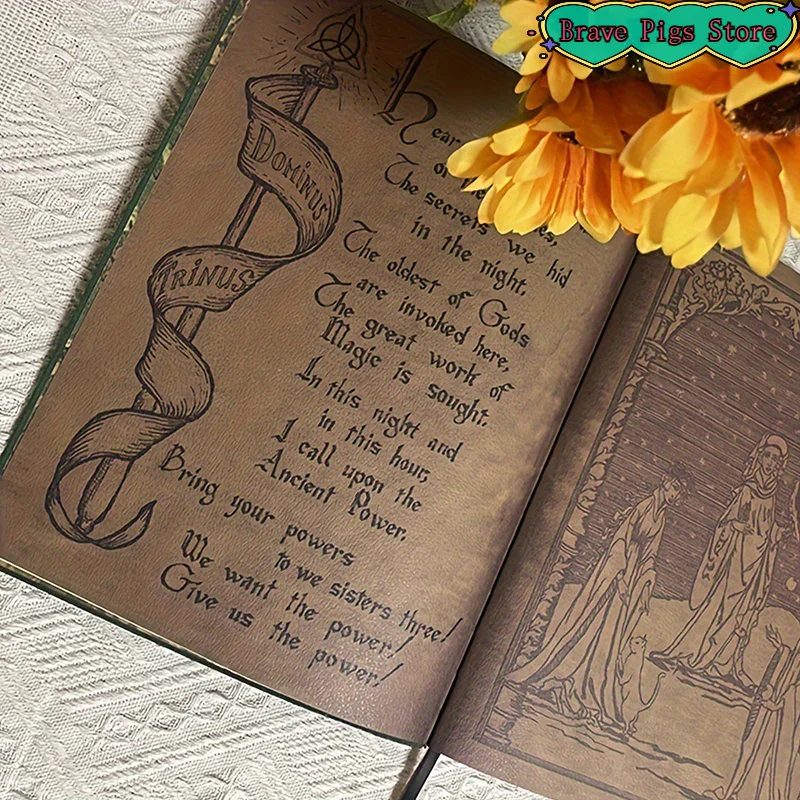 Brave Pigs Store
Dominus
Trinus
The secrets we hid
in the night,
The oldest of Gods
are invoked here,
The great work of
Magic is sought.
In this night and
in this hour,
I call upon the
Ancient Power.
Bring your powers
to we sisters three!
We want the power!
Give us the power!